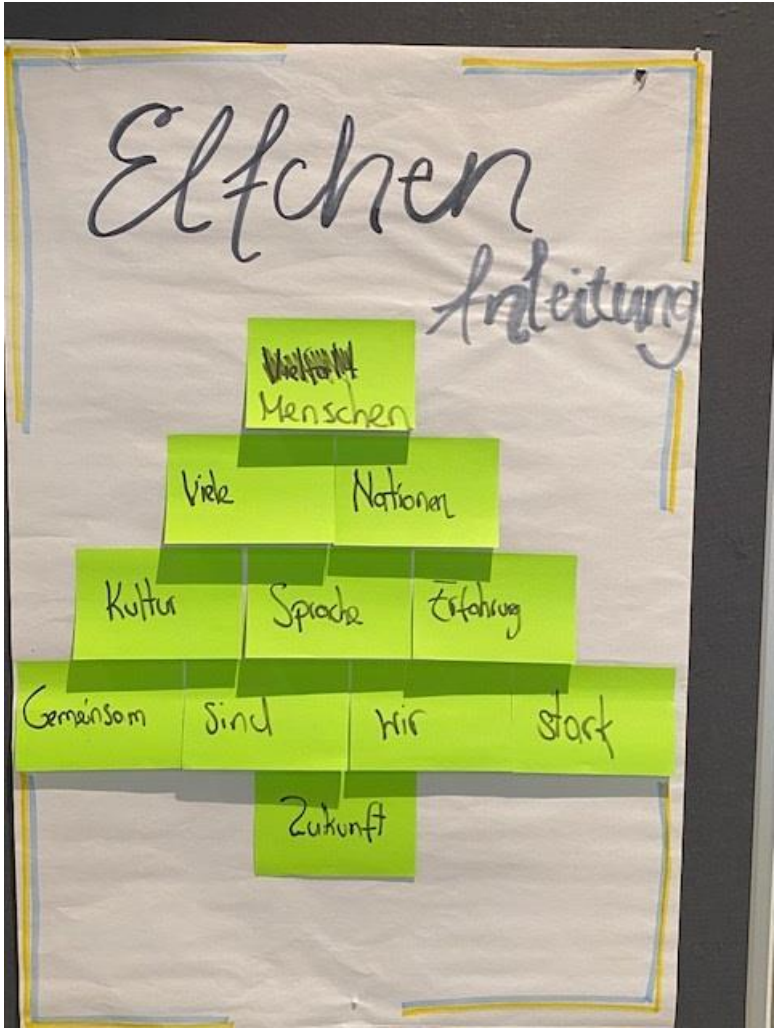 Elfchen
Anleitung
Menschen
Viele Nationen
Kultur Sprache Erfahrung
Gemeinsam sind wir stark
Zukunft